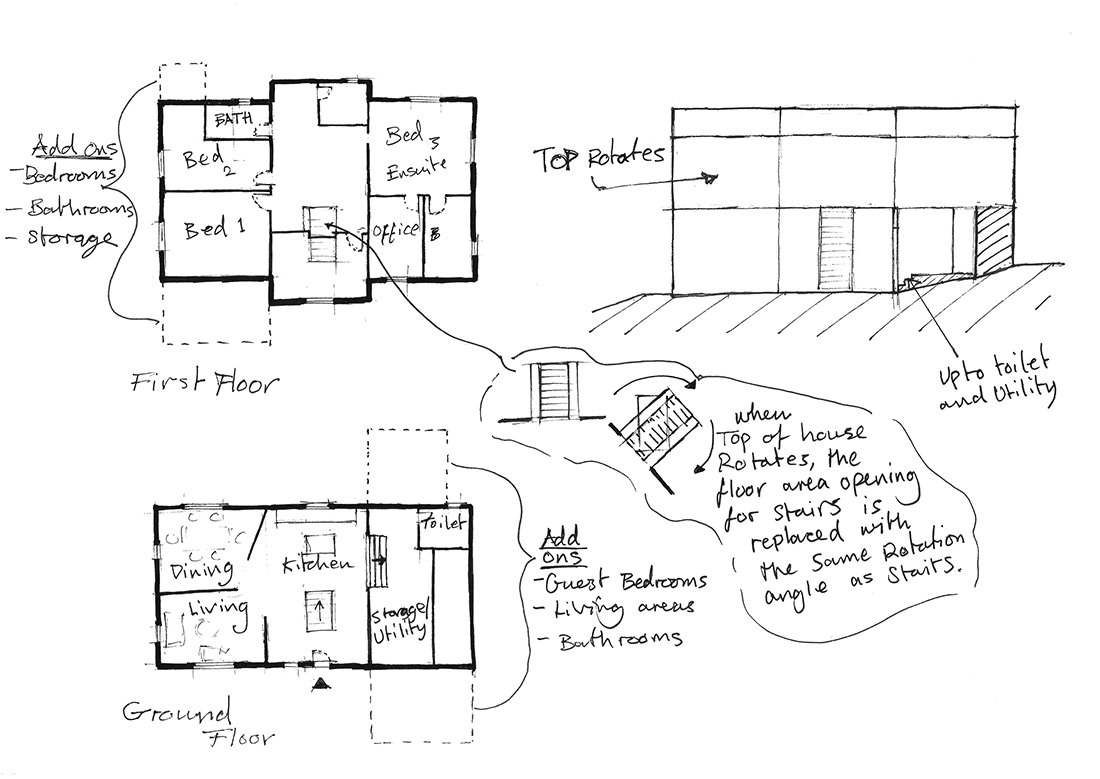 Add ons
- Bedrooms
- Bathrooms
- Storage
BATH
Bed 2
Bed 1
Bed 3
Ensuite
Office
B
First Floor
TOP Rotates
Up to toilet
and Utility
when
Top of house
Rotates, the
floor area opening
for stairs is
replaced with
the Same Rotation
angle as Stairs.
Dining
Living
Kitchen
Toilet
Storage/
Utility
Add
ons
- Guest Bedrooms
- Living areas
- Bathrooms
Ground
Floor